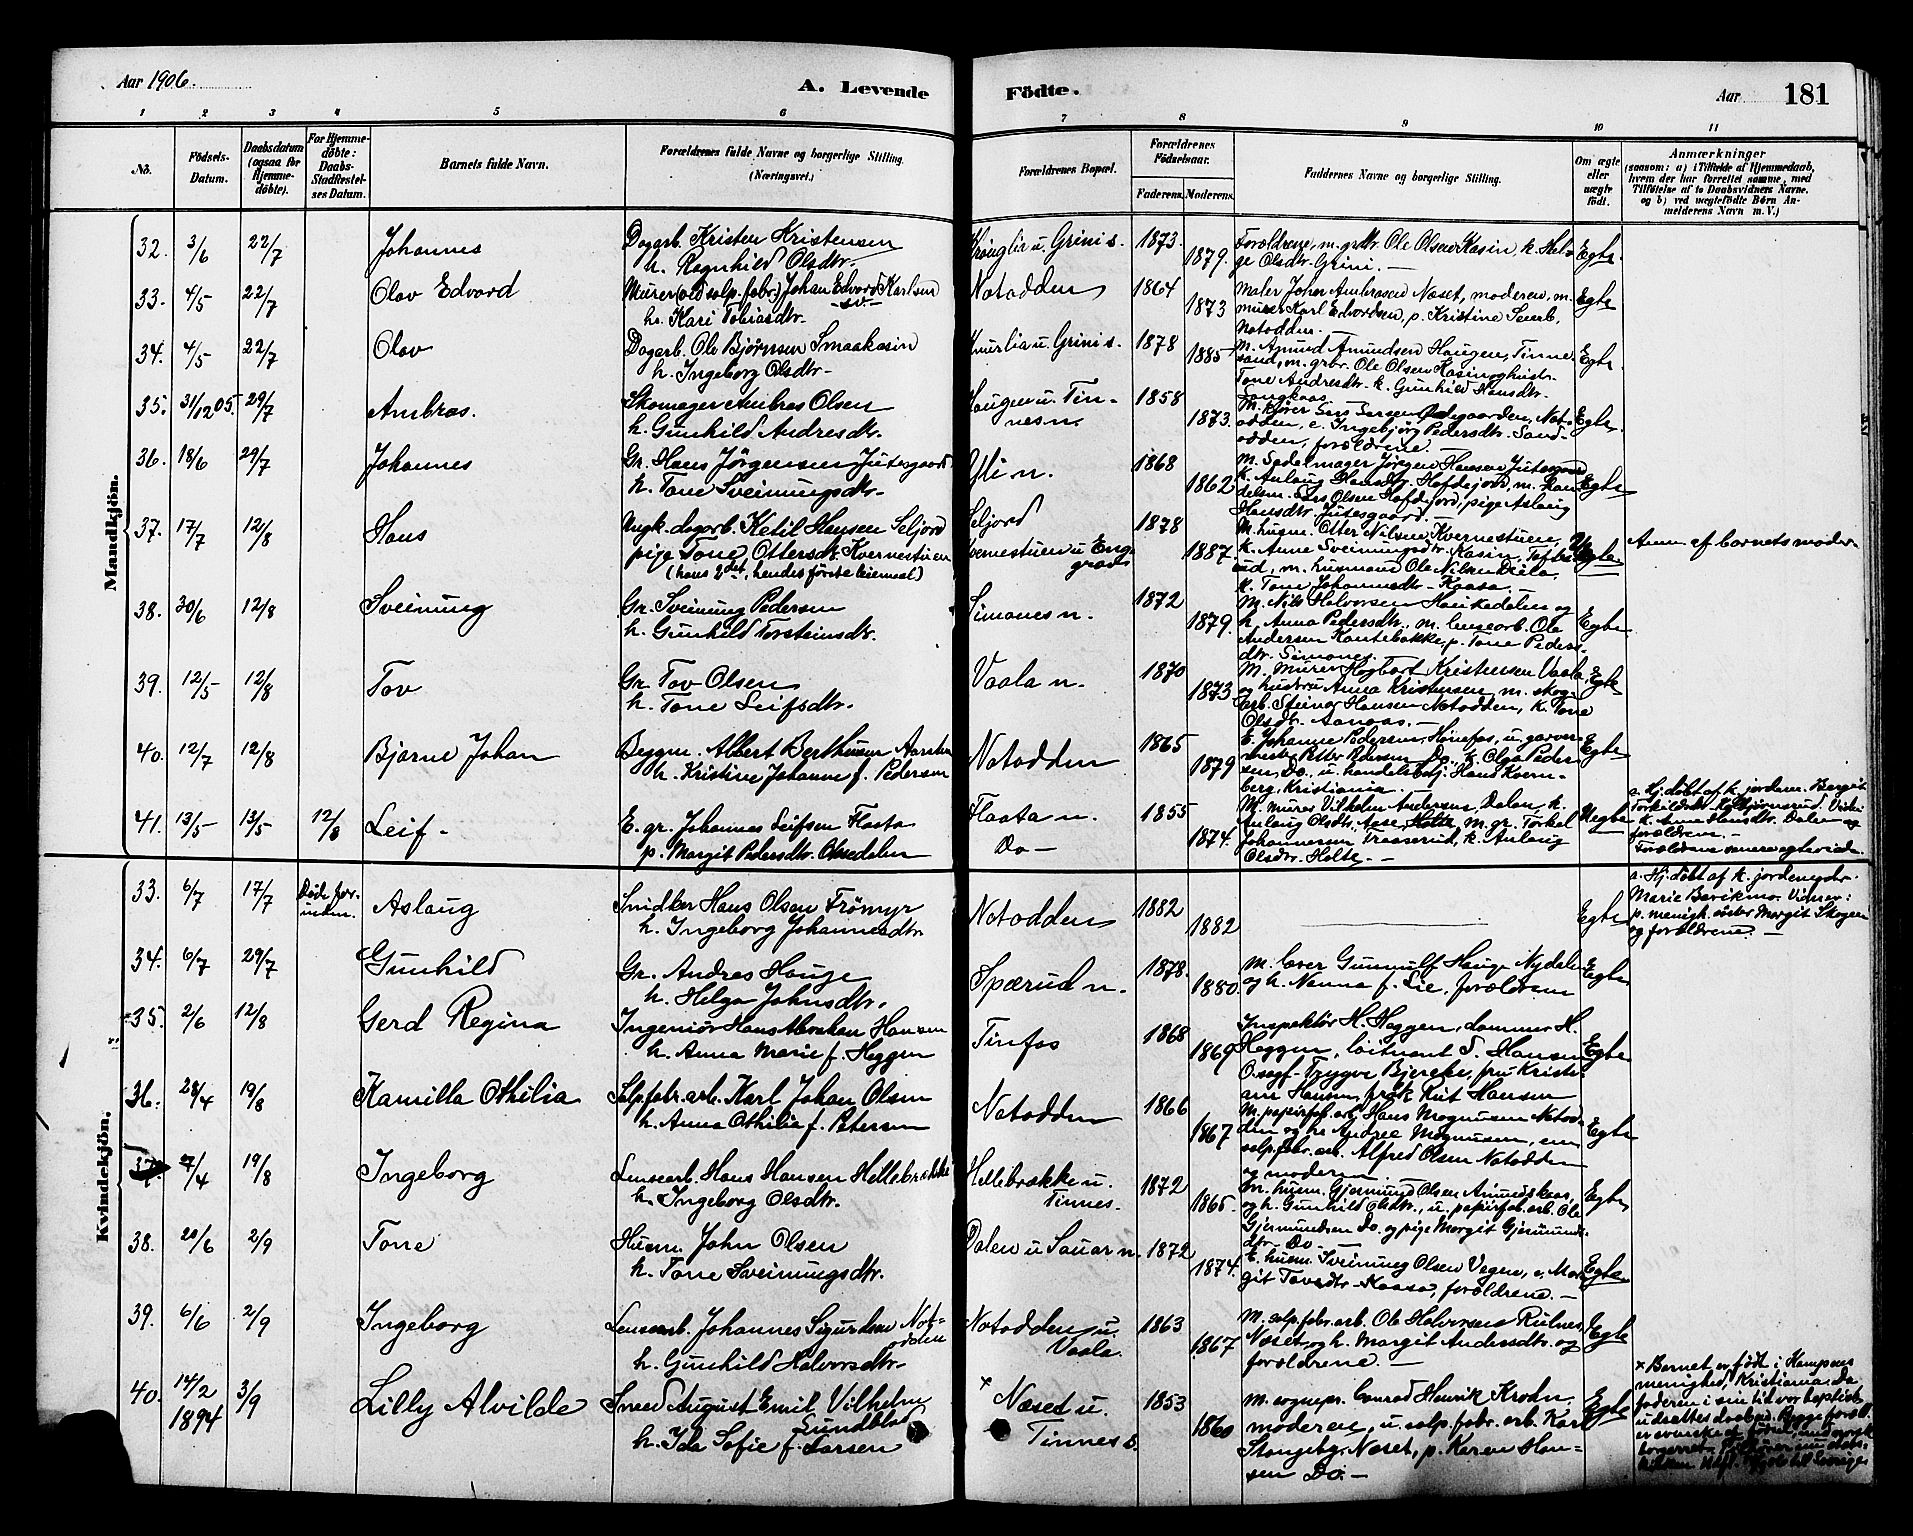 Aar 1906.
A. Levende
Födte.
Aar
181
1 2 3 4 5 6
7 8 9 10 11
No.
Födsels-
Datum.
Daabsdatum
(ogsaa for
Hjemme-
döbte).
For Hjemme-
döbte:
Daabs-
Stadfæstel-
ses Datum.
Barnets fulde Navn.
Forældrenes fulde Navne og borgerlige Stilling.
(Næringsvei.)
Forældrenes Bopæl.
Forældrenes
Födselsaar.
Faderens.
Moderens.
Faddernes Navne og borgerlige Stilling.
Om ægte
eller
uægte
födt.
Anmærkninger
(saasom: a) i Tilfælde af Hjemmedaab,
hvem der har forrettet samme, med
Tilföielse af to Daabsvidners Navne,
og b) ved uægtefödte Börn An-
melderens Navn m. V.)
Mandkjön.
32. 3/6 22/7 Johannes Dagarb. Kristen Kristensen
h. Ragnhild Olsdtr. u. Grini s. 1873. 1879. Forældrene, m. grbr. Ole Olsen Kasin k. Hel-
ge Olsdtr. Grini. — Egte
33. 4/5 22/7 Olav Edvard Murer (ved salp.fabr.) Johan Edvard Karlsen
h. Kari Tobiasdtr. Notodden 1864 1873 Maler Johan Ambrosen Næset, moderen, m.
murer Karl Edvardsen, p. Kristine
Notodden. Egte
34. 4/5 22/7 Olav Dagarb. Ole Bjørnsen Smaakasin
h. Ingeborg Olsdtr. u. Grini s. 1878 1885 M. Amund Amundsen Haugen, Tinne
sand, m. grbr. Ole Olsen Kasin og hustr.
Tone Andresdtr. k. Gunhild Hansdtr.
Egte
35. 31/12 05. 29/7 Ambros. Skomager Ambros Olsen
h. Gunhild Andresdtr. Haugen u. Tin-
nes n. 1858 1873. M. kjører Lars Larsen Ødegaarden, Not-
odden, e. Ingebjørg Pedersdtr.
odden, forældrene. — Egte
36. 18/6 29/7 Johannes Gr. Hans Jörgensen Jutesgaard
h. Tone Sveinungsdtr. Yli n. 1868 1862 M. Sadelmager Jörgen Hansen Jutesgaard
k. Aslaug Hansdtr. Hofdejord, m. Han-
delsm. Lars Olsen Hofdejord, pige Aslaug
Hansdtr. Jutesgaard. — Egte
37. 17/7 12/8 Hans Ungk. dagarb. Ketil Hansen Seljord
pige Tone Ottersdtr. Kvernestuen
(hans 2det, hendes förste leiermaal) Seljord
Kvernestuen u. 1878 1887. M. husm. Otter Nilsen Kvernestuen,
k. Anne Sveinungsdtr. Kasin,
m. husmand Ole Nilsen
k. Tone Johannesdtr. Kaasa. — Uegte Anm. af barnets moder.
38. 30/6 12/8 Sveinung Gr. Sveinung Pedersen
h. Gunhild Torsteinsdtr. Simones n. 1872 1879. M. Nils Halvorsen Haukedalen og
h. Anna Pedersdtr., m. lensearb. Ole
Andersen Kantebakke, p. Tone Peders-
dtr. Simones. Egte
39. 12/5 12/8 Tov Gr. Tov Olsen
h. Tone Leifsdtr. Vaala n. 1870 1873 M. Murer Hagbart Kristensen Vaala
og hustru Anna Kristensen, m. skog-
arb. Steinar Hansen Notodden, k. Tone
Olsdtr. Egte
40. 12/7 12/8 Bjarne Johan Byggm. Albert Berthusen
h. Kristine Johanne f. Pedersen Notodden 1865 1879 E. Johanne Pedersen, Hönefos, u. garver-
mester Petter Pedersen Do., k. Olga Peder-
sen, Do., u. handelsbetj. Hans Kvern-
berg, Kristiania. — Egte
41. 13/5 13/5 12/8 Leif - E. gr. Johannes Leifsen Flaata
p. Margit Pedersdtr. Flaata n.
Do — 1855 1874. M. murer Vilhelm Andersen Dalen, k.
Aslaug Olsdtr. Aase, m. gr. Torkel
Johannesen Traaserud, k. Aslaug
Olsdtr. Holte. — Uegte a. Hj. döbt af k. jordem. Bergit
k. Anne Hansdtr. Dalen og
forældrene. —
Forældrene senere egteviede.
Kvindekjön.
33. 6/7 17/7 Död for-
inden. Aslaug Snidker Hans Olsen Frömyr
h. Ingeborg Johannesdtr. Notodden 1882 1882 Egte a. Hj. döbt af k. jordemoder
Marie Bavikmo. Vidner:
p. menigh. söster Margit Skogen
og forældrene. —
34. 6/7 29/7 Gunhild Gr. Andres Hauge
h. Helga Johnsdtr. Spærud n. 1878. 1880. M. lærer Gunnulf Hauge Nydalen
og h. Nanna f. Lie, forældrene Egte
35. 2/6 12/8 Gerd Regina Ingeniör Hans Abraham Hansen
h. Anna Marie f. Heggen Tinfos 1868 1869 Inspektör H. Heggen, dommer H.
Heggen, löitnant S. Hansen
O.sagf. Trygve Bjerke, fru Kristi-
ane Hansen, frök. Rut Hansen Egte
36. 28/4 19/8 Kamilla Othilia Salp.fabr.arb. Karl Johan Olsen
h. Anna Othilie f. Petersen Notodden 1866 1867 M. papirfab.arb. Hans Magnusen Notod-
den og h. Andrea Magnusen, em
salp.fabr.arb. Alfred Olsen Notodden
og moderen. Egte
37. 7/4 19/8 Ingeborg Lensearb. Hans Hansen Hellebrække
h. Ingeborg Olsdtr. Hellebrække u.
Tinnes. 1872 1865. husm. Gjermund Olsen Amundskaas,
og h. Gunhild Olsdtr., u. papirfab.arb. Ole
Gjermundsen Do. og pige Margit Gjermund-
dtr. Do — Egte
38. 20/6 2/9 Tone Husm. John Olsen
h. Tone Sveinungsdtr. Dalen u. Sauar n. 1872 1874. E. husm. Sveinung Olsen Vegen, e. Mar-
git Tovsdtr. Kaasa, forældrene. — Egte
39. 6/6 2/9 Ingeborg Lensearb. Johannes Sigurdsen Not-
odden
h. Gunhild Halvorsdtr. Notodden u.
Vaala. 1863 1867 M. salp.fabr.arb. Ole Halvorsen Rulnes
Næset, og h. Margit Andersdtr. og
forældrene — Egte
40. 14/2 1894 3/9 Lilly Alvilde Smed August Emil Vilhelm
Lundblad
h. Ida Sofie f. Larsen × Næset u.
Tinnes s. 1853 1860 M. sognepr. Conrad Henrik Krohn,
moderen, u. salp.fabr.arb. Karl
Stangeby Næset, p. Karen Han-
sen Do. — Egte × Barnet er födt i Kampens
menighed, Kristiania. Da
faderen i sin tid var baptist
udsattes daaben. Begge foræld.
er svenske af födsel, men norsk